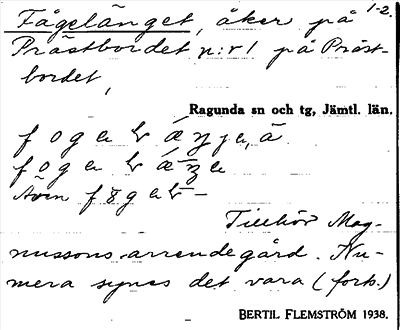 Fågelänget, åker på 1-2.
Prästbordet n:r 1 på Präst-
bordet,
Ragunda sn och tg, Jämtl. län.
Även
Tillhör Mag-
nussons arrendegård. Nu-
mera synes det vara (forts.)
BERTIL FLEMSTRÖM 1938.